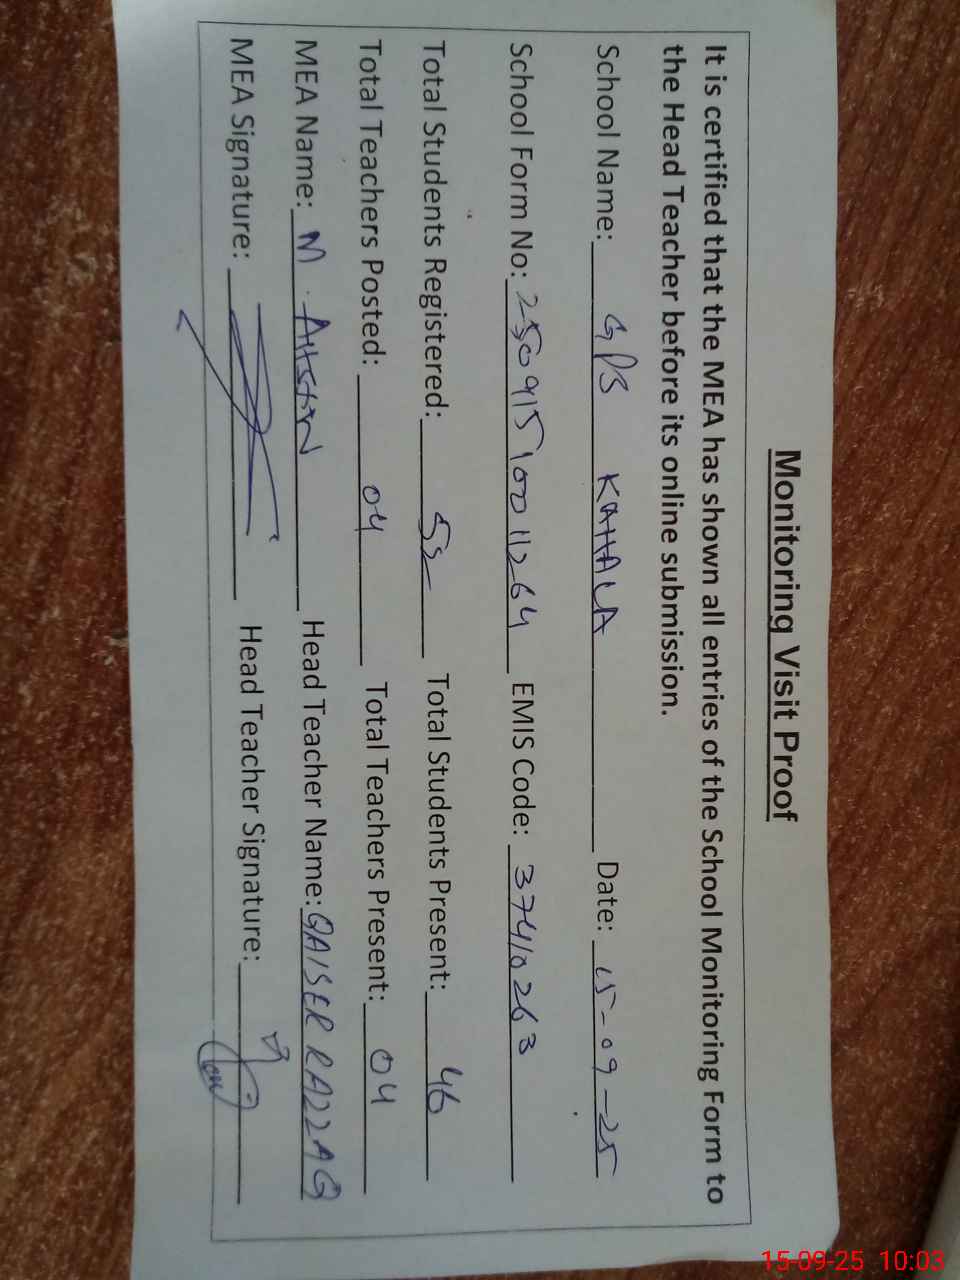 Monitoring Visit Proof
It is certified that the MEA has shown all entries of the School Monitoring Form to
the Head Teacher before its online submission.
School Name: GPS KAHALA Date: 15-09-25
School Form No: 25091510011264 EMIS Code: 37410263
Total Students Registered: 52 Total Students Present: 46
Total Teachers Posted: 04 Total Teachers Present: 04
MEA Name: M. AHSAN Head Teacher Name: QAISER RAZZAQ
MEA Signature: Head Teacher Signature:
15-09-25 10:03